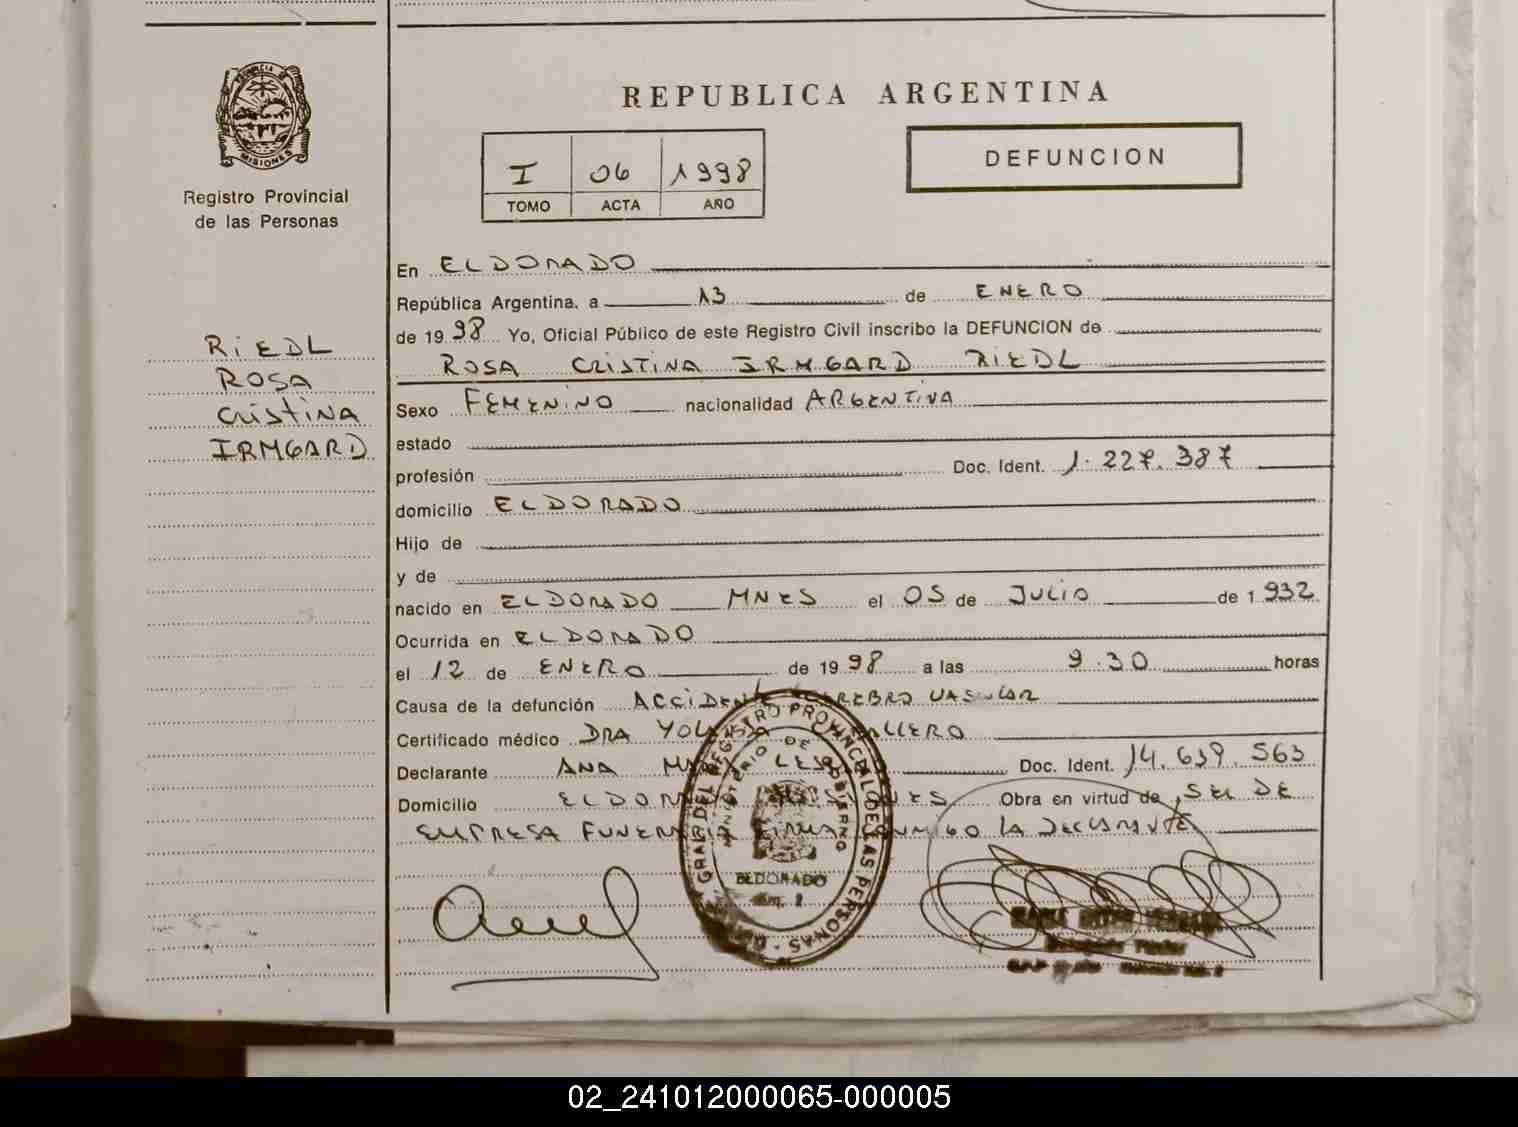 PROVINCIA DE
MISIONES
Registro Provincial
de las Personas
RIEDL
ROSA
CRISTINA
IRMGARD
REPUBLICA ARGENTINA
I 06 1998
TOMO ACTA AÑO
DEFUNCION
En ELDORADO
República Argentina, a 13 de ENERO
de 1998 Yo, Oficial Público de este Registro Civil inscribo la DEFUNCION de
ROSA CRISTINA IRMGARD RIEDL
Sexo FEMENINO nacionalidad ARGENTINA
estado
profesión Doc. Ident. 1.227.387
domicilio ELDORADO
Hijo de
y de
nacido en ELDORADO MNES el 05 de JULIO de 1932
Ocurrida en ELDORADO
el 12 de ENERO de 1998 a las 9.30 horas
Causa de la defunción ACCIDENTE CEREBRO VASCULAR
Certificado médico DRA
Declarante ANA Doc. Ident. 14.639.563
Domicilio ELDORADO Obra en virtud de SER DE
EMPRESA FUNERARIA FIRMA CONMIGO LA DECLARANTE
GRAL DEL REGISTRO PROVINCIAL DE LAS PERSONAS
MINISTERIO DE GOBIERNO
ELDORADO
02_241012000065-000005